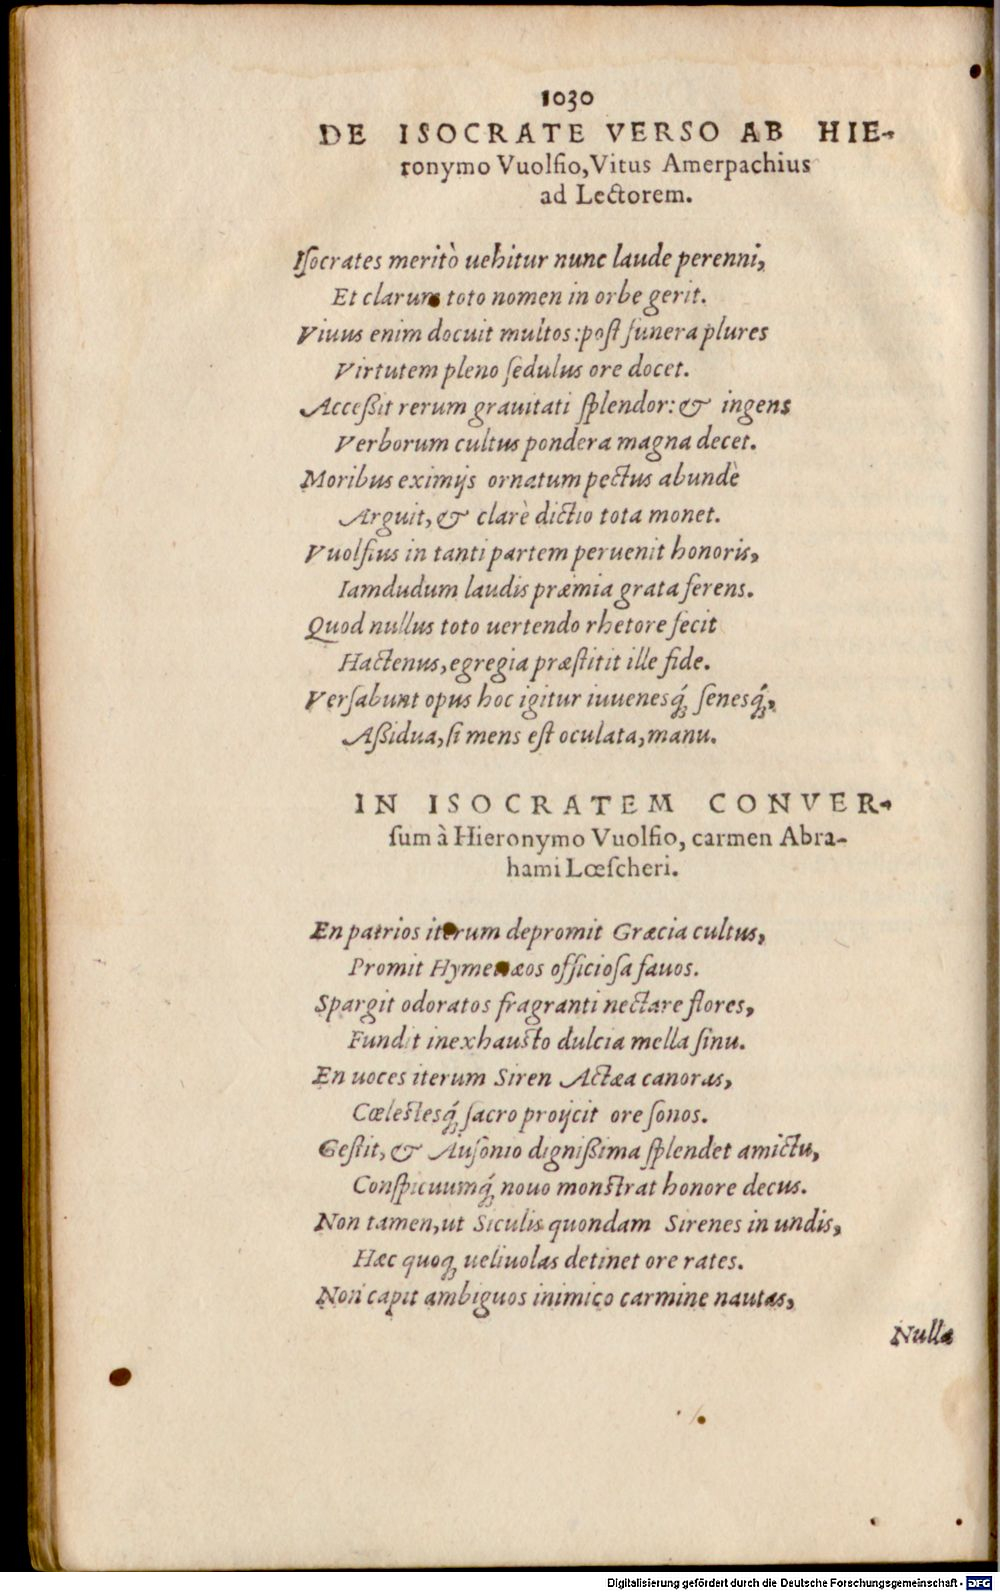 1030
DE ISOCRATE VERSO AB HIE-
ronymo Vuolfio, Vitus Amerpachius
ad Lectorem.
Iſocrates meritò uehitur nunc laude perenni,
Et clarum toto nomen in orbe gerit.
Viuus enim docuit multos: poſt funera plures
Virtutem pleno ſedulus ore docet.
Acceßit rerum grauitati ſplendor: & ingens
Verborum cultus pondera magna decet.
Moribus eximijs ornatum pectus abundè
Arguit, & clarè dictio tota monet.
Vuolfius in tanti partem peruenit honoris,
Iamdudum laudis præmia grata ferens.
Quod nullus toto uertendo rhetore fecit
Hactenus, egregia præſtitit ille fide.
Verſabunt opus hoc igitur iuuenesq́; ſenesq́;,
Aßidua, ſi mens eſt oculata, manu.
IN ISOCRATEM CONVER-
ſum à Hieronymo Vuolfio, carmen Abra-
hami Lœſcheri.
En patrios iterum depromit Græcia cultus,
Promit Hymenæos officioſa fauos.
Spargit odoratos fragranti nectare flores,
Fundit inexhausto dulcia mella ſinu.
En uoces iterum Siren Actæa canoras,
Cœlestesq́; ſacro proijcit ore ſonos.
Geſtit, & Auſonio digniſſima ſplendet amictu,
Conſpicuumq́; nouo monstrat honore decus.
Non tamen, ut Siculis quondam Sirenes in undis,
Hæc quoq; ueliuolas detinet ore rates.
Non capit ambiguos inimico carmine nautas,
Nulla
Digitalisierung gefördert durch die Deutsche Forschungsgemeinschaft - DFG